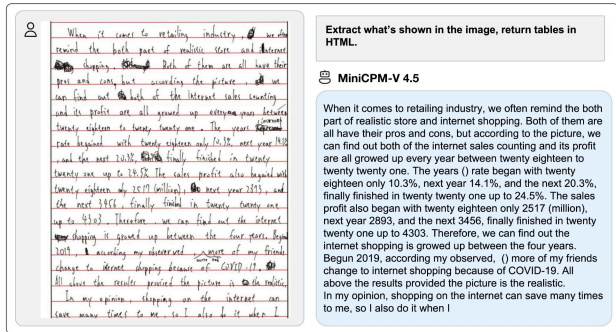 When it comes to retailing industry, we often
remind the both part of realistic store and internet
shopping. Both of them are all have their
pros and cons, but according the picture, we
can find out both of the internet sales counting
and its profit are all growed up every year between
twenty eighteen to twenty twenty one. The years
rate begained with twenty eighteen only 10.3%, next year 14.1%
, and the next 20.3%, finally finished in twenty
twenty one up to 24.5%. The sales profit also begained with
twenty eighteen only 2517 (million), next year 2893, and
the next 3456, finally finished in twenty twenty one
up to 4303. Therefore, we can find out the internet
shopping is growed up between the four years. Begun
2019, according my observed, more of my friends
change to internet shopping because of COVID-19.
All above the results provied the picture is the realistic.
In my opinion, shopping on the internet can
save many times to me, so I also do it when I
Extract what's shown in the image, return tables in
HTML.
MiniCPM-V 4.5
When it comes to retailing industry, we often remind the both
part of realistic store and internet shopping. Both of them are
all have their pros and cons, but according to the picture, we
can find out both of the internet sales counting and its profit
are all growed up every year between twenty eighteen to
twenty twenty one. The years () rate began with twenty
eighteen only 10.3%, next year 14.1%, and the next 20.3%,
finally finished in twenty twenty one up to 24.5%. The sales
profit also began with twenty eighteen only 2517 (million),
next year 2893, and the next 3456, finally finished in twenty
twenty one up to 4303. Therefore, we can find out the
internet shopping is growed up between the four years.
Begun 2019, according my observed, () more of my friends
change to internet shopping because of COVID-19. All
above the results provided the picture is the realistic.
In my opinion, shopping on the internet can save many times
to me, so I also do it when I